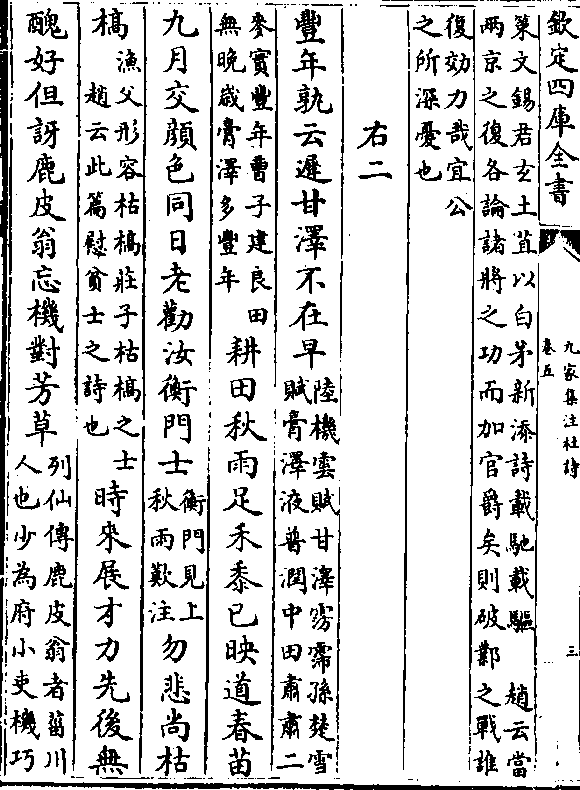 欽定四庫全書
九家集注杜詩
卷五
三
策文錫君玄土苴以白茅新添詩載馳載驅 趙云當
兩京之復各論諸將之功而加官爵矣則破鄴之戰誰
復効力哉宜公
之所深憂也
右二
豐年孰云遲甘澤不在早
陸機雲賦甘澤霶霈孫楚雪
賦膏澤液普潤中田肅肅二
麥實豐年曹子建良田
無晚歲膏澤多豐年
耕田秋雨足禾黍已映道春苗
九月交顏色同日老勸汝衡門士
衡門見上
秋雨歎注
勿悲尚枯
槁
漁父形容枯槁莊子枯槁之士
趙云此篇慰貧士之詩也
時來展才力先後無
醜好但訝鹿皮翁忘機對芳草
列仙傳鹿皮翁者菑川
人也少為府小吏機巧